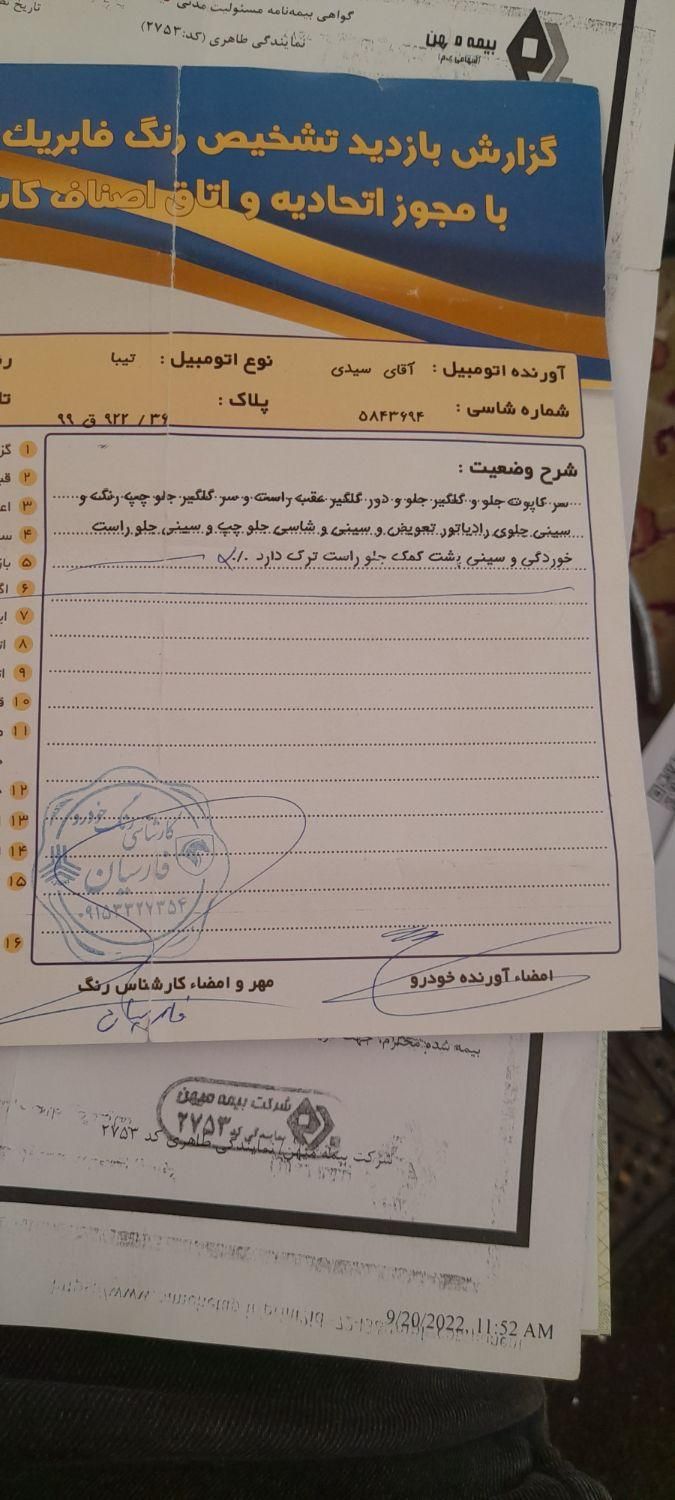 گواهی بیمه‌نامه مسئولیت مدنی
تاریخ
نمایندگی طاهری (کد:۲۷۵۳)
بیمه میهن
گزارش بازدید تشخیص رنگ فابریک
با مجوز اتحادیه و اتاق اصناف
آورنده اتومبیل : آقای سیدی
نوع اتومبیل : تیبا
شماره شاسی : ۵۸۴۳۶۹۴
پلاک : ۳۶ / ۹۲۲ ق ۹۹
شرح وضعیت :
سر کاپوت جلو و گلگیر جلو و دور گلگیر عقب راست و سر گلگیر جلو چپ رنگ و
سینی جلوی رادیاتور تعویض و سینی و شاسی جلو چپ و سینی جلو راست
خوردگی و سینی پشت کمک جلو راست ترک دارد
۱
۲
۳
۴
۵
۶
۷
۸
۹
۱۰
۱۱
۱۲
۱۳
۱۴
۱۵
۱۶
کارشناسی رنگ خودرو
فارسیان
۰۹۱۵۳۳۲۷۳۵۴
امضاء آورنده خودرو
مهر و امضاء کارشناس رنگ
شرکت بیمه میهن
نمایندگی کد ۲۷۵۳
شرکت بیمه میهن/ نمایندگی طاهری کد ۲۷۵۳
9/20/2022, 11:52 AM